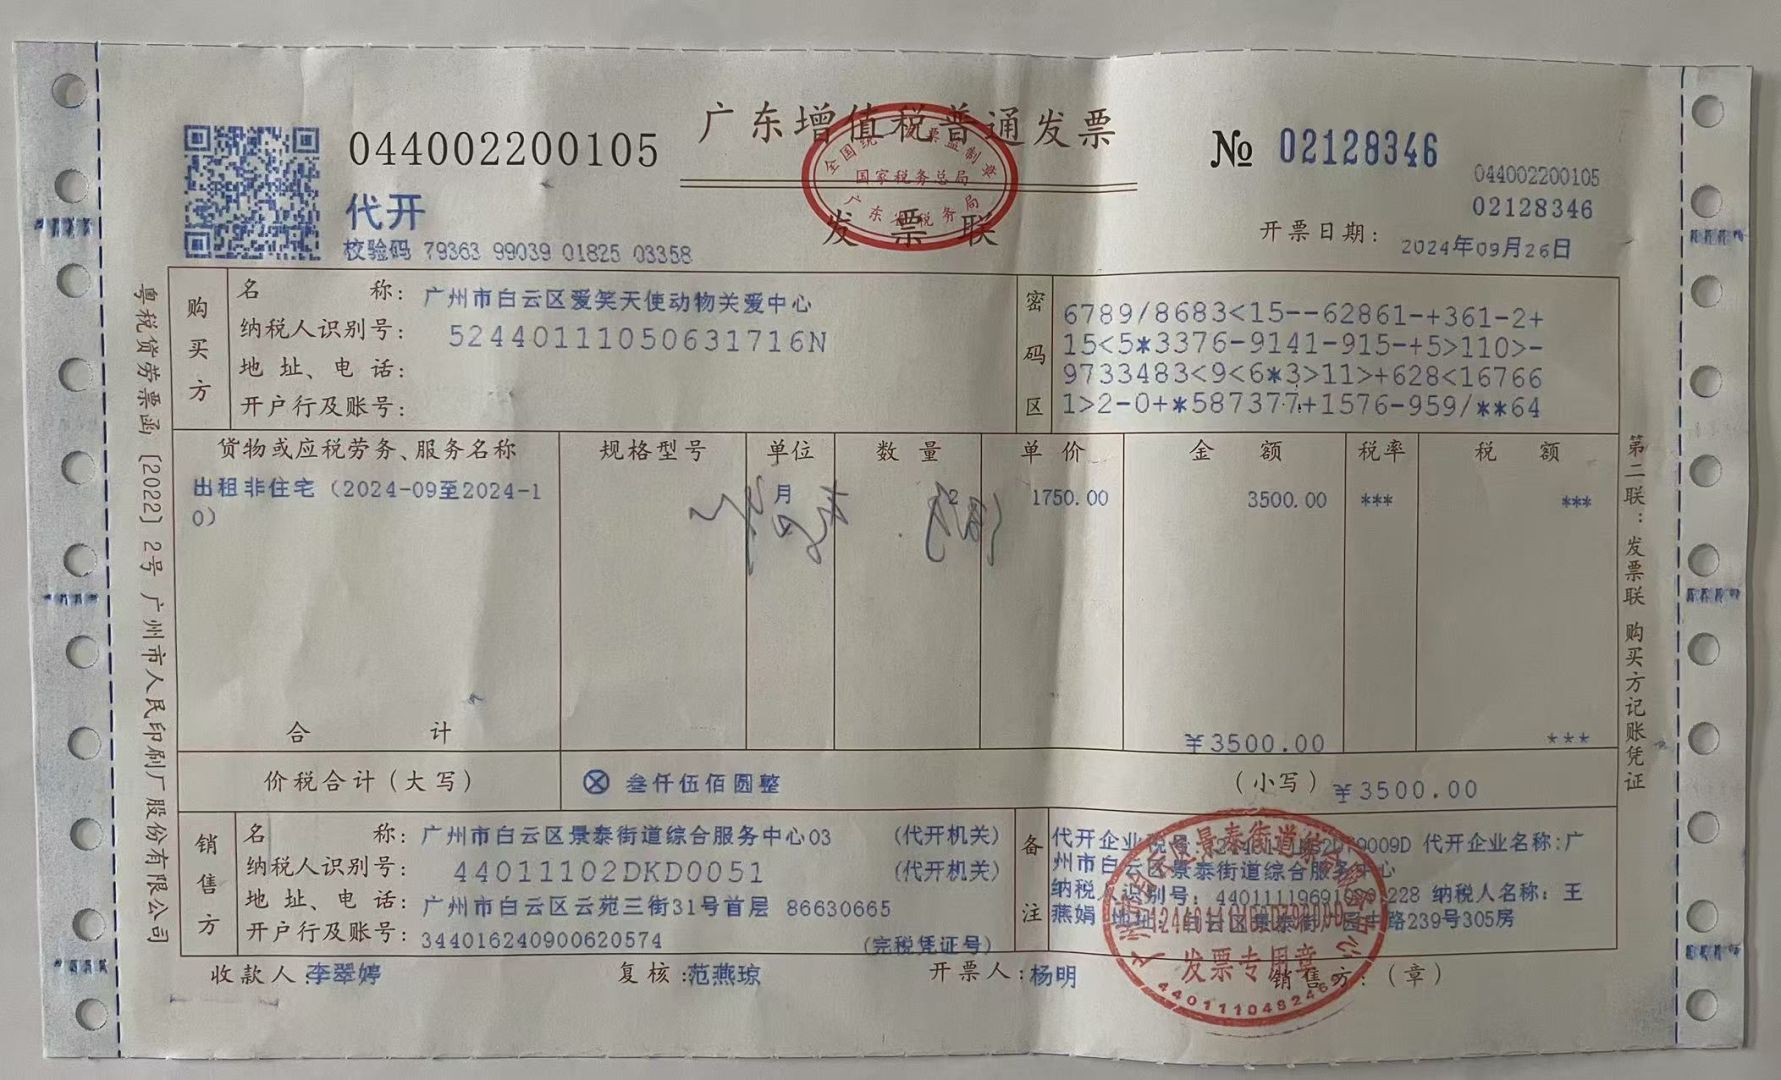 广东增值税普通发票
发票联
全国统一发票监制章
国家税务总局
广东省税务局
044002200105
代开
校验码 79363 99039 01825 03358
№ 02128346
044002200105
02128346
开票日期: 2024年09月26日
购买方
名称: 广州市白云区爱笑天使动物关爱中心
纳税人识别号: 52440111050631716N
地址、电话:
开户行及账号:
密码区
6789/8683<15--62861-+361-2+
15<5*3376-9141-915-+5>110>-
9733483<9<6*3>11>+628<16766
1>2-0+*587377+1576-959/**64
货物或应税劳务、服务名称 规格型号 单位 数量 单价 金额 税率 税额
出租非住宅（2024-09至2024-1 月 2 1750.00 3500.00 *** ***
0）
合计 ¥3500.00 ***
价税合计(大写) ⊗ 叁仟伍佰圆整 (小写) ¥3500.00
销售方
名称: 广州市白云区景泰街道综合服务中心03 (代开机关)
纳税人识别号: 44011102DKD0051 (代开机关)
地址、电话: 广州市白云区云苑三街31号首层 86630665
开户行及账号: 344016240900620574 (完税凭证号)
备注
代开企业税号: 代开企业名称:广
州市白云区景泰街道综合服务中心
纳税人识别号: 纳税人名称: 王
燕娟 地址: 白云区景泰街 路239号305房
发票专用章
收款人:李翠婷 复核:范燕琼 开票人:杨明 销售方:(章)
粤税货劳票函〔2022〕2号 广州市人民印刷厂股份有限公司
第二联:发票联 购买方记账凭证